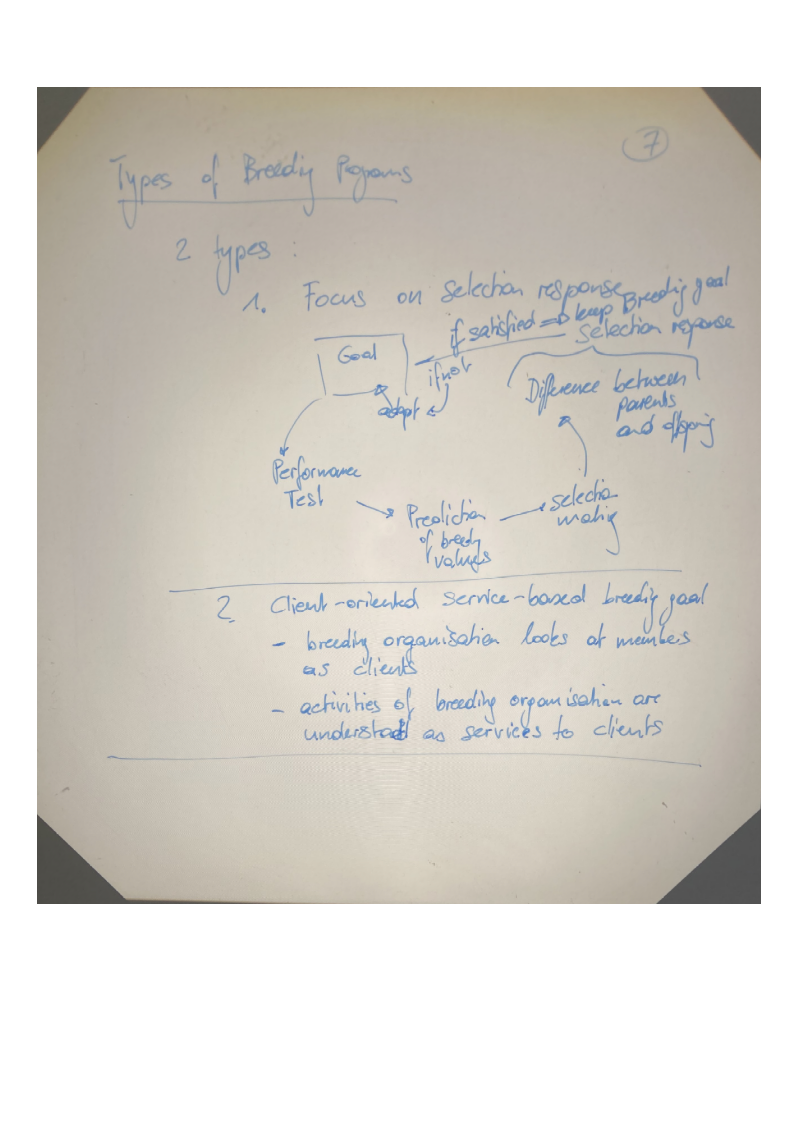 7
Types of Breeding Programs
2 types :
1. Focus on selection response
if satisfied => keep Breeding goal
selection response
Goal
if not
adapt
Difference between
parents
and offspring
Performance
Test
Prediction
of breeding
values
selection
mating
2. Client-oriented service-based breeding goal
- breeding organisation looks at members
as clients
- activities of breeding organisation are
understood as services to clients